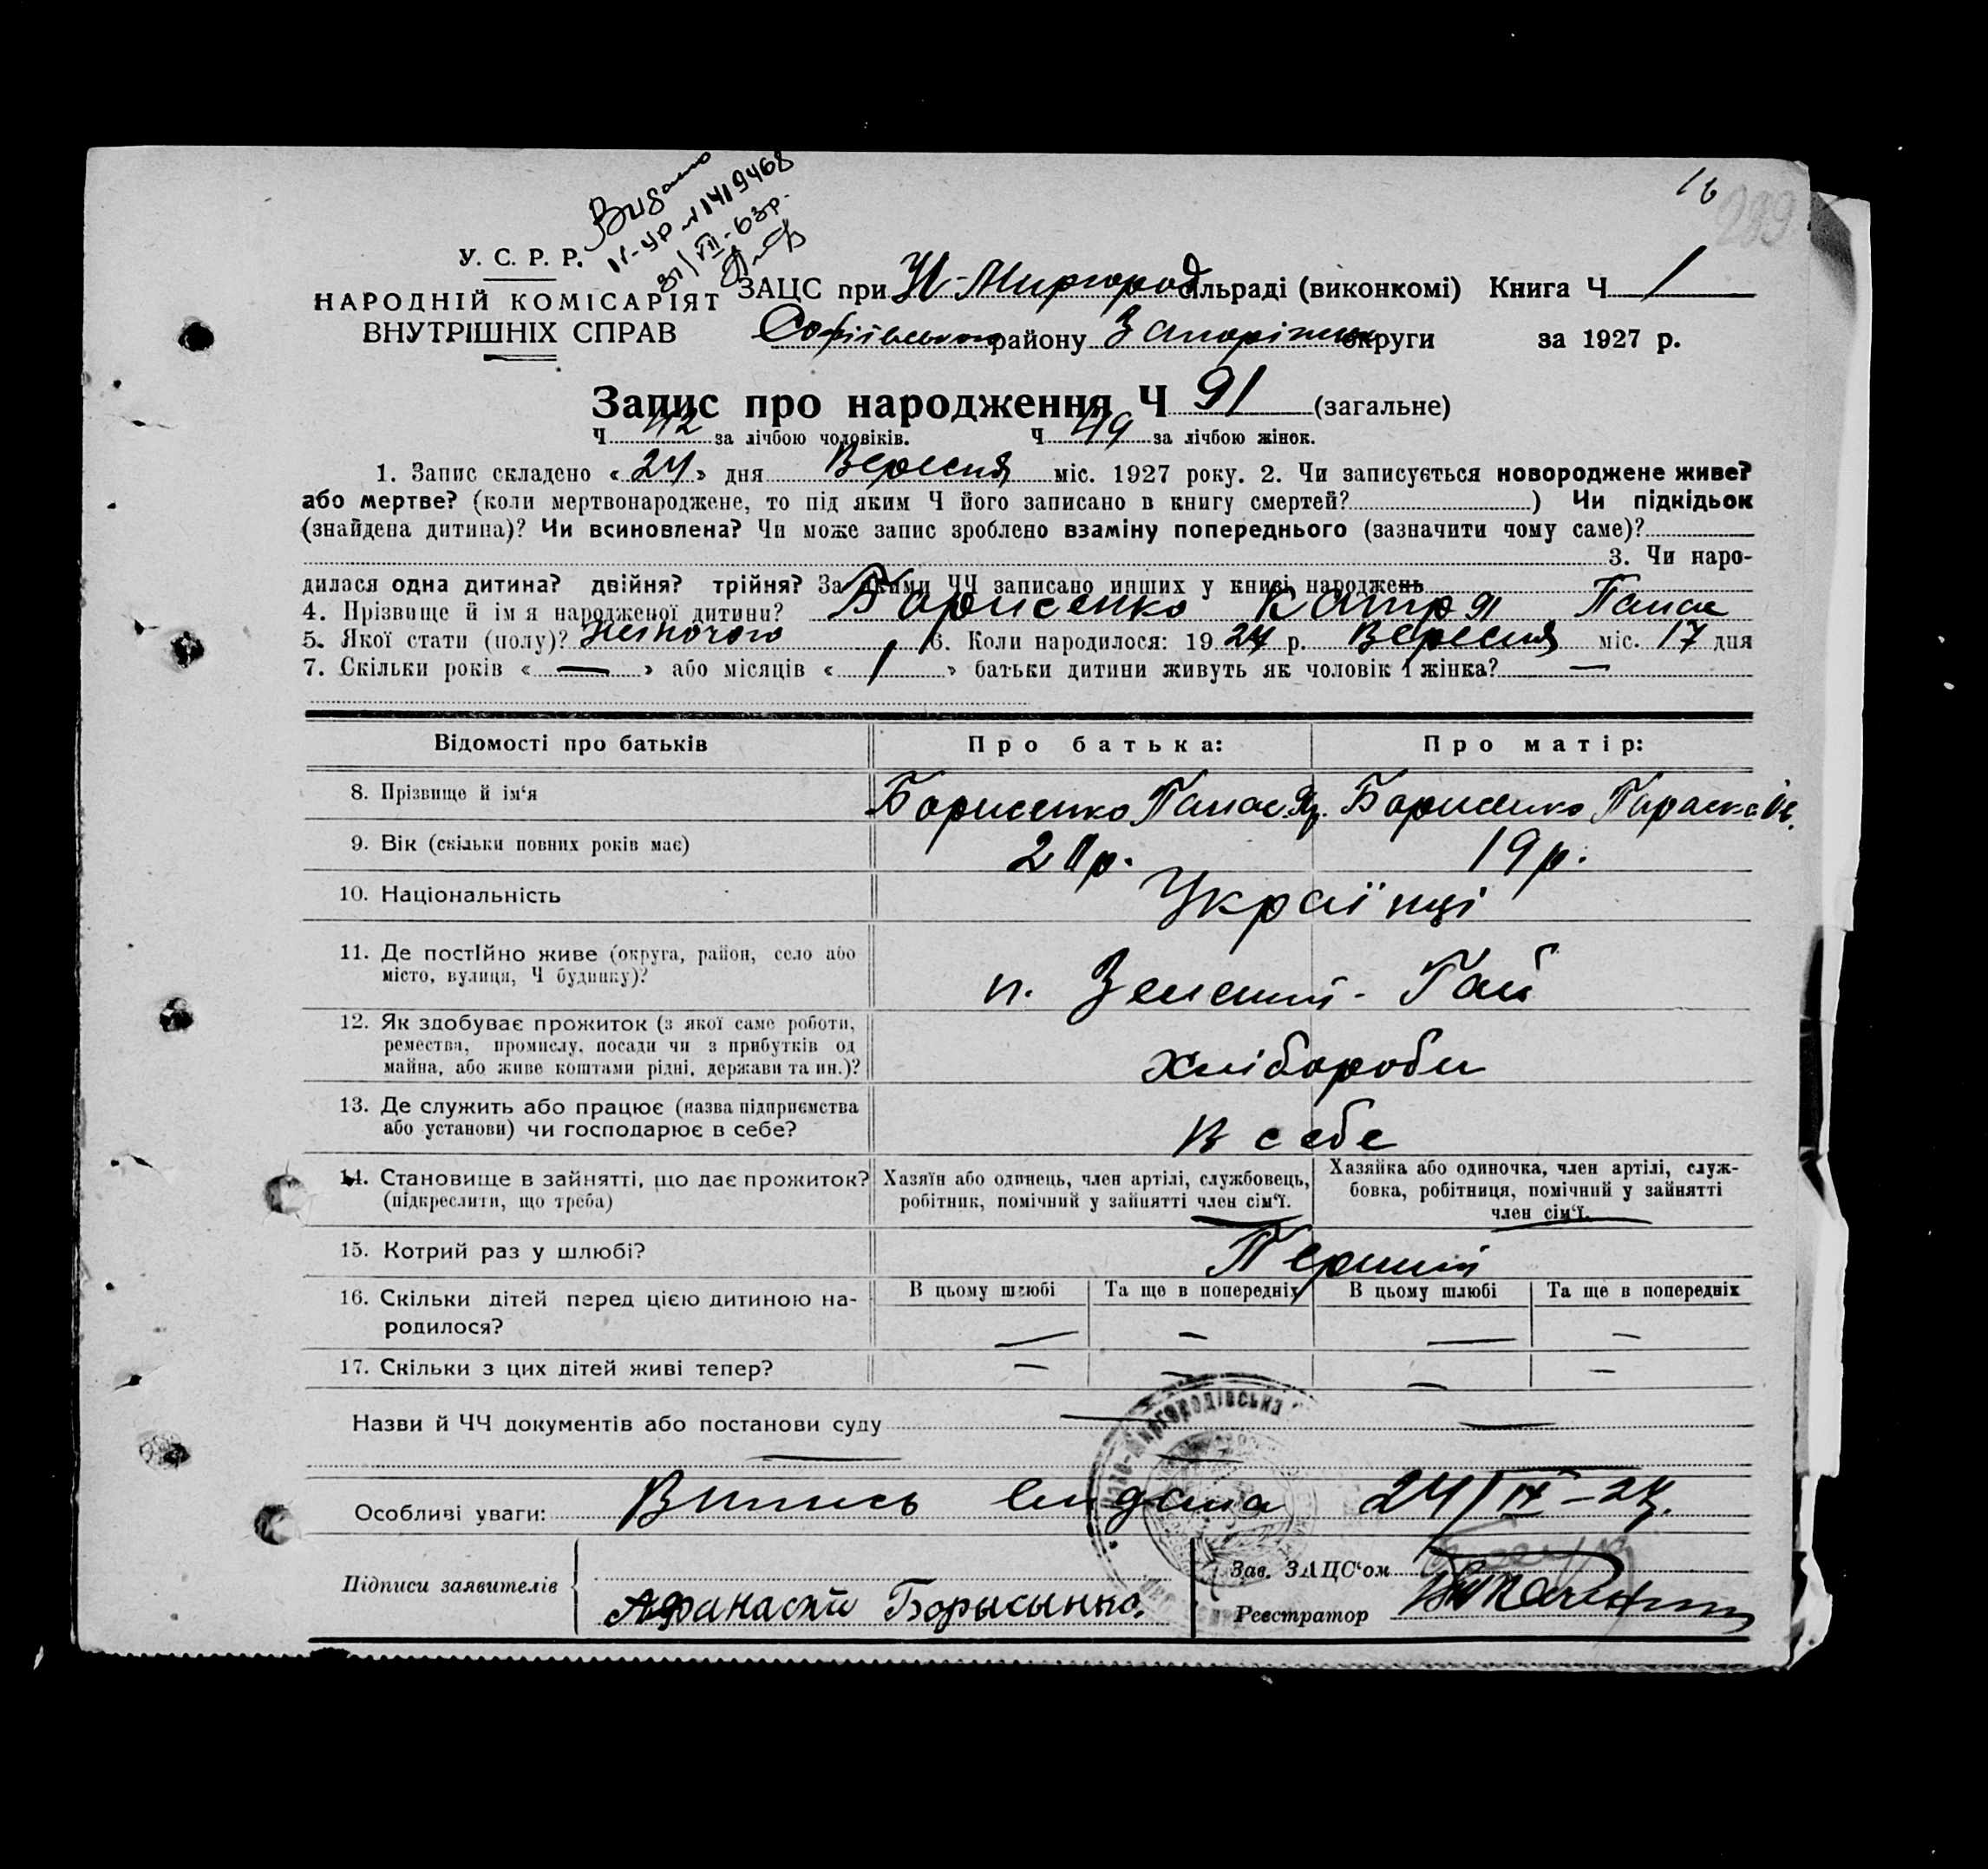 Видано
16
299
У. С. Р. Р.
НАРОДНІЙ КОМІСАРІЯТ
ВНУТРІШНІХ СПРАВ
ЗАЦС при Н-Миргород сільраді (виконкомі) Книга Ч 1
Софіївського району Запоріжськ округи за 1927 р.
Запис про народження Ч 91 (загальне)
Ч 42 за лічбою чоловіків. Ч 49 за лічбою жінок.
1. Запис складено «24» дня Вересня міс. 1927 року. 2. Чи записується новороджене живе?
або мертве? (коли мертвонароджене, то під яким Ч його записано в книгу смертей? ) Чи підкідьок
(знайдена дитина)? Чи всиновлена? Чи може запис зроблено взаміну попереднього (зазначити чому саме)?
3. Чи наро-
дилася одна дитина? двійня? трійня? За якими ЧЧ записано инших у книзі народжень
4. Прізвище й ім я народженої дитини? Борисенко Катря Панас
5. Якої стати (полу)? жіночого 6. Коли народилося: 1927 р. Вересня міс. 17 дня
7. Скільки років « — » або місяців « / » батьки дитини живуть як чоловік і жінка? —
Відомості про батьків Про батька: Про матір:
8. Прізвище й ім‘я Борисенко Панас Борисенко Параска
9. Вік (скільки повних років має) 20р. 19р.
10. Національність Українці
11. Де постІйно живе (округа, район, село або
місто, вулиця, Ч будинку)? п. Зелений-Гай
12. Як здобуває прожиток (з якої саме роботи,
ремества, промислу, посади чи з прибутків од
майна, або живе коштами рідні, держави та ин.)? хлібороби
13. Де служить або працює (назва підприємства
або установи) чи господарює в себе? В себе
14. Становище в зайнятті, що дає прожиток?
(підкреслити, що треба)
Хазяїн або одинець, член артілі, службовець,
робітник, помічний у зайнятті член сім‘ї.
Хазяйка або одиночка, член артілі, служ-
бовка, робітниця, помічний у зайнятті
член сім‘ї.
15. Котрий раз у шлюбі? Перший
16. Скільки дітей перед цією дитиною на-
родилося?
В цьому шлюбі Та ще в попередніх В цьому шлюбі Та ще в попередніх
— — — —
17. Скільки з цих дітей живі тепер? — — — —
Назви й ЧЧ документів або постанови суду — —
Особливі уваги: Випись видана 24/IX-27.
Підписи заявителів
Афанасий Борысынко.
Зав. ЗАЦС‘ом
Реєстратор